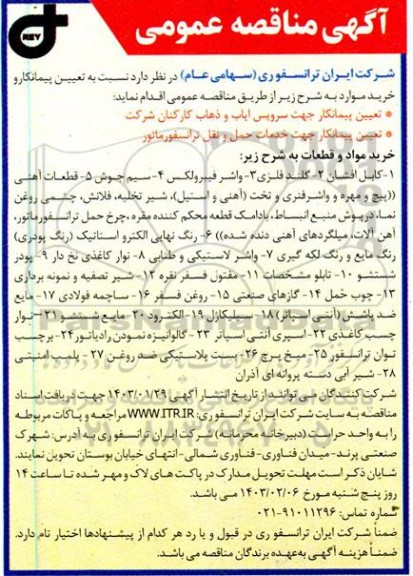 آگهی مناقصه عمومی
REY
شرکت ایران ترانسفو ری (سهامی عام) در نظر دارد نسبت به تعیین پیمانکار و
خرید موارد به شرح زیر از طریق مناقصه عمومی اقدام نماید:
• تعیین پیمانکار جهت سرویس ایاب و ذهاب کارکنان شرکت
• تعیین پیمانکار جهت خدمات حمل و نقل ترانسفورماتور
خرید مواد و قطعات به شرح زیر:
۱- کابل افشان ۲- گلند فلزی ۳- واشر فیبرولکس ۴- سیم جوش ۵- قطعات آهنی
((پیچ و مهره و واشرفنری و تخت (آهنی و استیل)، شیر تخلیه، فلانش، چشمی روغن
نما، درپوش منبع انبساط، بادامک قطعه محکم کننده مقره، چرخ حمل ترانسفورماتور،
آهن آلات، میلگردهای آهنی دنده شده)) ۶- رنگ نهایی الکترو استاتیک (رنگ پودری)
رنگ مایع و رنگ لکه گیری ۷- واشر لاستیکی و طنابی ۸- نوار کاغذی نخ دار ۹- پودر
شستشو ۱۰- تابلو مشخصات ۱۱- مفتول فسفر نقره ۱۲- شیر تصفیه و نمونه برداری
۱۳- چوب خمل ۱۴- گازهای صنعتی ۱۵- روغن فسفر ۱۶- ساچمه فولادی ۱۷- مایع
ضد پاشش (آنتی اسپاتر) ۱۸- سیلیکاژل ۱۹- الکترود ۲۰- مایع شستشو ۲۱- نوار
چسب کاغذی ۲۲- اسپری آنتی اسپاتر ۲۳- گالوانیزه نمودن رادیاتور ۲۴- برچسب
توان ترانسفور ۲۵- میخ پرچ ۲۶- بست پلاستیکی ضد روغن ۲۷- پلمپ امنیتی
۲۸- شیر آبی دسته پروانه ای آذران
شرکت کنندگان می توانند از تاریخ انتشار آگهی ۱۴۰۳/۰۱/۲۹ جهت دریافت اسناد
مناقصه به سایت شرکت ایران ترانسفو ری: WWW.ITR.IR مراجعه و پاکات مربوطه
را به واحد حراست (دبیرخانه محرمانه) شرکت ایران ترانسفو ری به آدرس: شهرک
صنعتی پرند- میدان فناوری- فناوری شمالی- انتهای خیابان بوستان تحویل نمایند.
شایان ذکر است مهلت تحویل مدارک در پاکت های لاک و مهر شده تا ساعت ۱۴
روز پنج شنبه مورخ ۱۴۰۳/۰۲/۰۶ می باشد.
شماره تماس: ۹۱۰۱۱۲۹۶-۰۲۱
ضمناً شرکت ایران ترانسفو ری در قبول و یا رد هر کدام از پیشنهادها اختیار تام دارد.
ضمناً هزینه آگهی به عهده برندگان مناقصه می باشد.